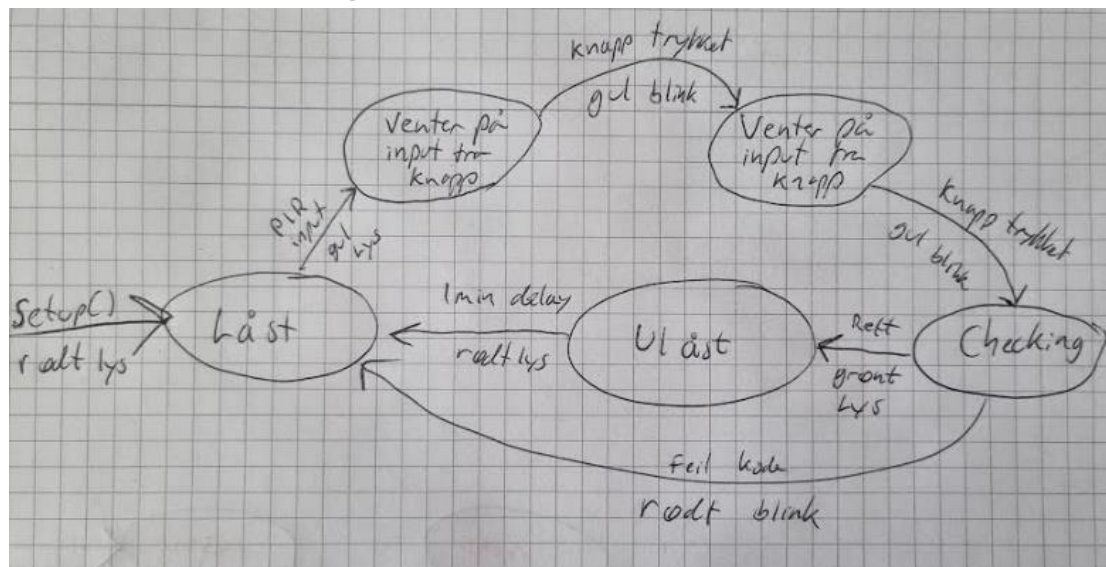 knapp trykket
gul blink
Venter på
input fra
knapp
Venter på
input fra
knapp
PIR
input
gul
lys
knapp trykket
gul blink
Setup()
rødt lys
Låst
1min delay
rødt lys
Ulåst
Rett
grønt
Lys
Checking
Feil kode
rødt blink